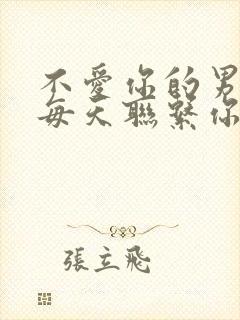 不愛你的男
每天聯繫你
張立飛